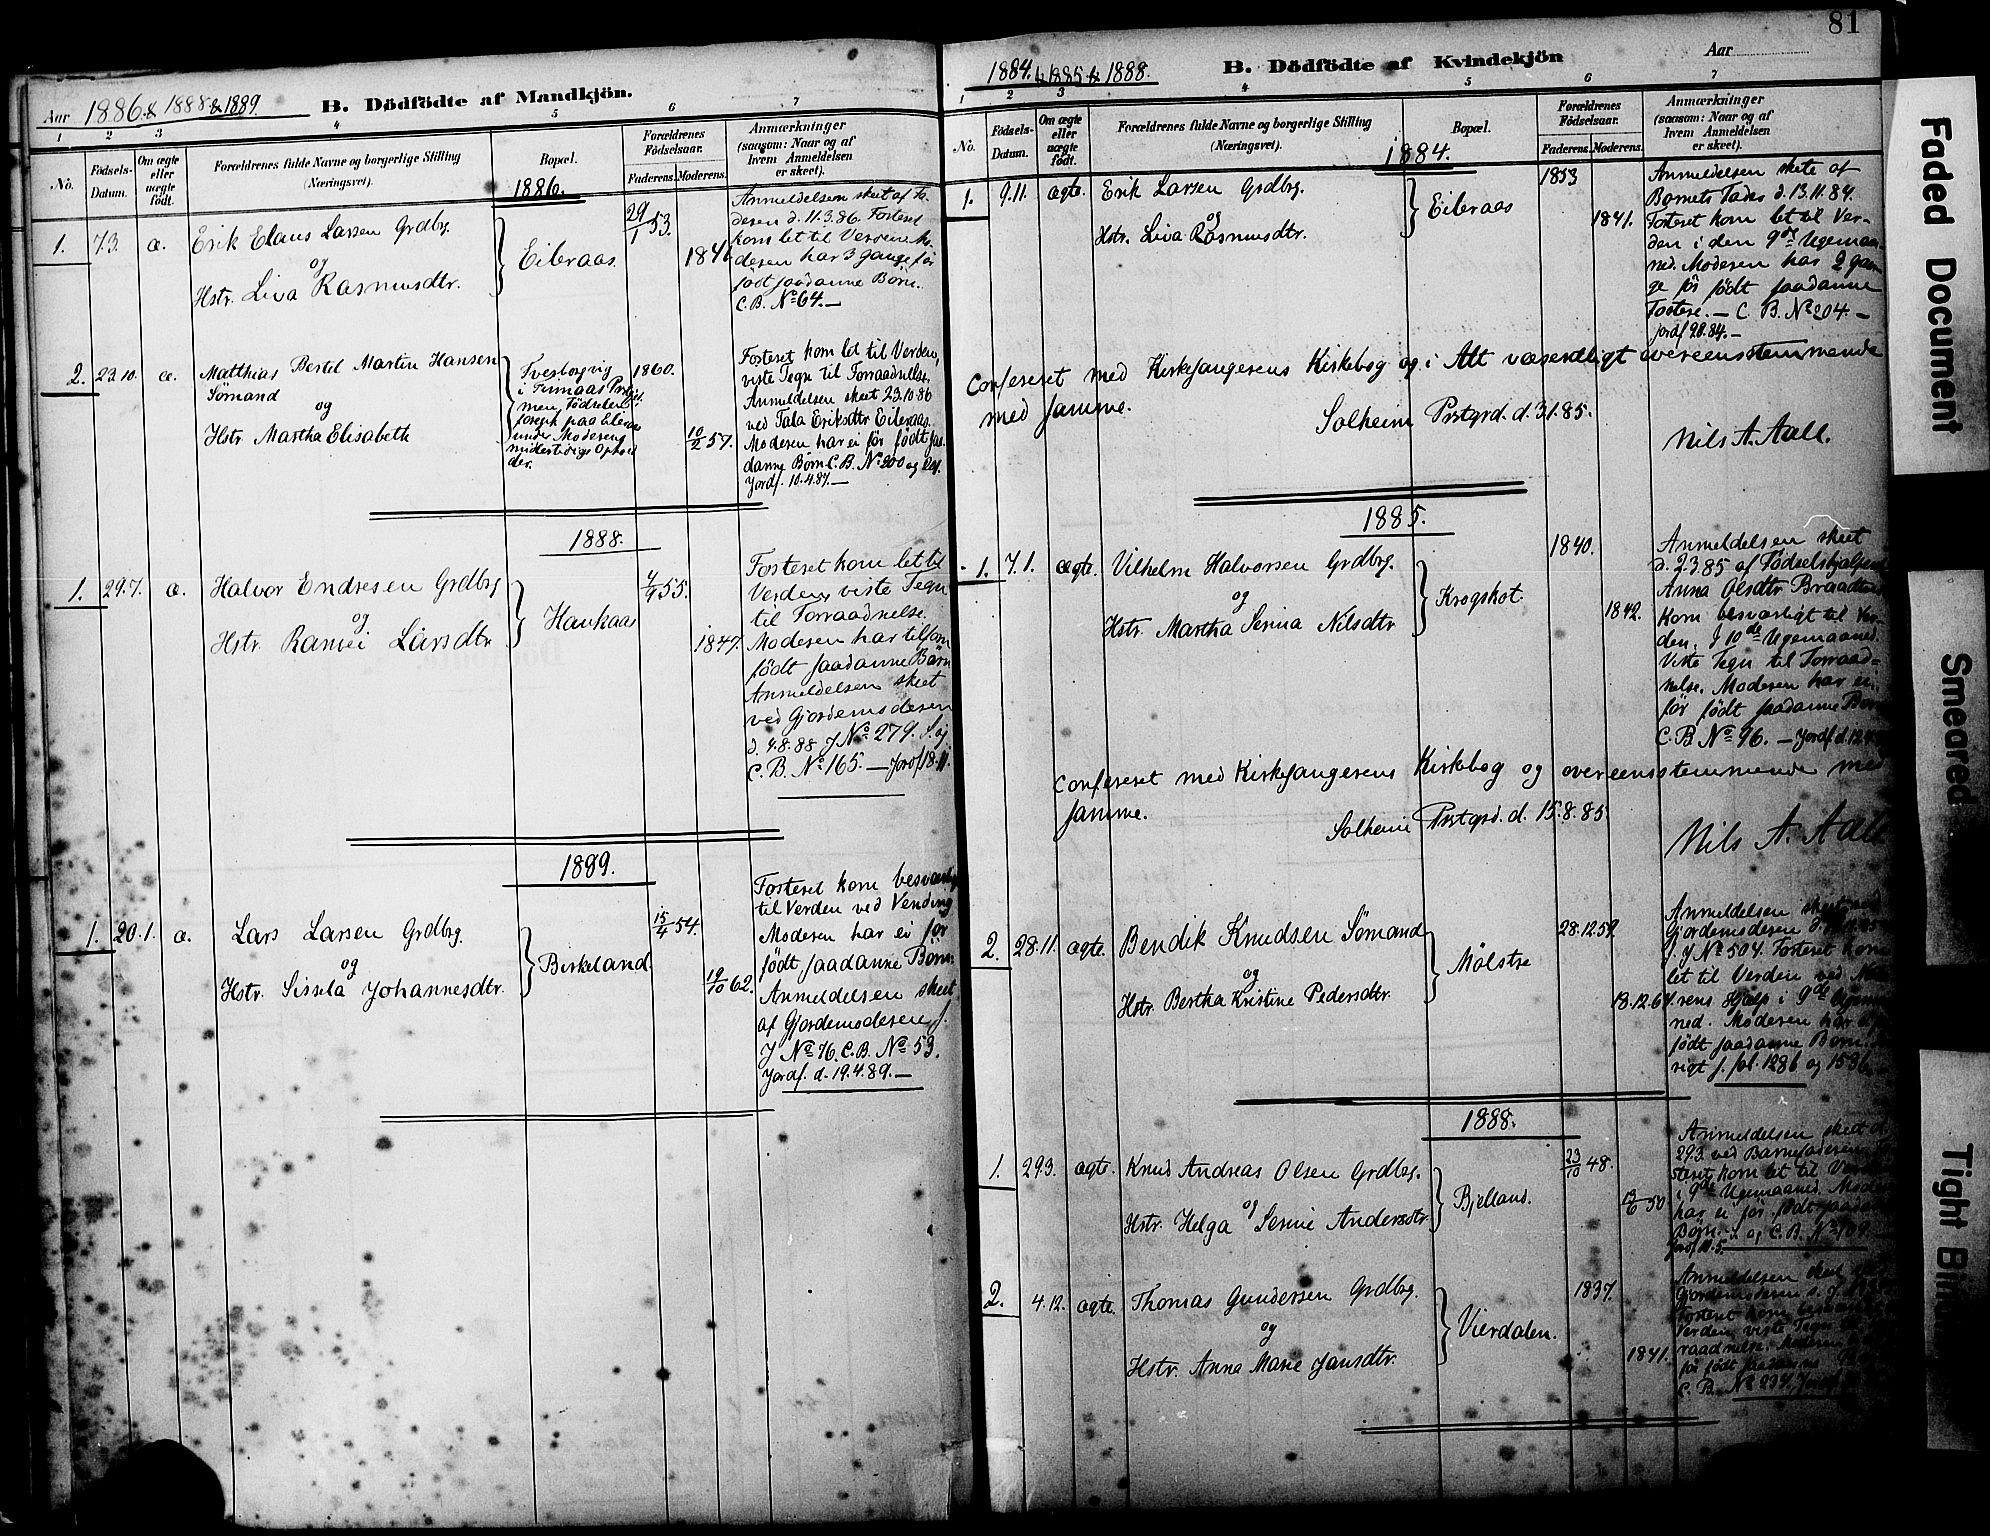 Aar 1886. & 1888 & 1889. B. Dödfödte af Mandkjön.
1 2 3 4 5 6 7
No.
Födsels-
Datum.
Om ægte
eller
uægte
födt.
Forældrenes fulde Navne og borgerlige Stilling
(Næringsvei).
Bopæl.
Forældrenes
Födselsaar.
Faderens. Moderens.
Anmærkninger
(saasom: Naar og af
hvem Anmeldelsen
er skeet).
1886.
1. 7.3. æ. Erik Elaus Larsen Grdbrg.
og
Hstr. Liva Rasmusdtr.
Eileraas.
29/1 53.
184
Anmeldelsen skeet af Fa-
deren d. 11.3.86. Fosteret
kom let til Verden. Mo-
deren har 3 Gange før
født saadanne Børn.
C.B. No 64.—
2. 23.10. æ. Matthias Bertel Martin Hansen
Sømand
og
Hstr. Martha Elisabeth
Tvesborgvig
men, Fødselen
foregik paa Eileraas
under Moderens
midlertidige Ophol
der.
1860.
10/2 57.
Fosteret kom let til Verden,
viste Tegn til Forraadnelse.
Anmeldelsen skeet 23.10.86
ved Tala Eriksdtr Eileraas.
Moderen har ei før født saa-
danne Børn. C.B. No 200 og
Jordf. 10.4.87.—
1888.
1. 29.7. æ. Halvor Endresen Grdbrg
og
Hstr. Ranvei Larsdtr
Haukaas
4/4 55.
1847.
Fosteret kom let til
Verden, viste Tegn
til Forraadnelse.
Moderen har tilforn
født saadanne Børn
Anmeldelsen skeet
ved Gjordemoderen
d. 4.8.88 J No 279. S. og
C.B. No 165.—Jordf 18.11.
1889.
1. 20.1. æ. Lars Larsen Grdbrg.
og
Hstr. Sissela Johannesdtr.
Birkeland.
15/4 54.
19/10 62.
Fosteret kom besværlig
til Verden ved Vending
Moderen har ei før
født saadanne Børn.
Anmeldelsen skeet
af Gjordemoderen J.
J No 76. C.B. No 53.
Jordf. d. 19.4.89.—
81
1884. & 1885 & 1888. B. Dödfödte af Kvindekjön Aar
1 2 3 4 5 6 7
No.
Födsels-
Datum.
Om ægte
eller
uægte
födt.
Forældrenes fulde Navne og borgerlige Stilling
(Næringsvei).
Bopæl.
Forældrenes
Födselsaar.
Faderens. Moderens.
Anmærkninger
(saasom: Naar og af
hvem Anmeldelsen
er skeet).
1884.
1. 9.11. ægte. Erik Larsen Grdbrg.
og
Hstr. Liva Rasmusdtr.
Eileraas
1853
1841.
Anmeldelsen skete af
Barnets Fader d. 13.11.84.
Fosteret kom let til Ver-
den i den 9de Ugemaa-
ned. Moderen har 2 Gan-
ge før født saadanne
Fostere.— C.B. No 204.—
Jordf 28.84.—
Confereret med Kirkesangerens Kirkebog og i Alt væsentligt overeensstemmende
med samme.
Solheim Prstgrd. d. 3.1.85.
Nils A. Aall.
1885.
1. 7.1. ægte. Vilhelm Halvorsen Grdbrg.
og
Hstr. Martha Serina Nilsdtr
Krogskot.
1840.
1842.
Anmeldelsen skeet
d. 2.3.85 af Fødselshjælpersk
Anna Olsdtr Braadtland
Kom besværligt til Ver-
den. J 10de Ugemaaned.
Viste Tegn til Forraad-
nelse. Moderen har ei
før født saadanne Børn
C.B. No 96.—Jordf. d. 12.4
Confereret med Kirkesangerens Kirkebog og overeensstemmende med
samme.
Solheim Prstgrd. d. 15.8.85.
Nils A. Aall
2. 28.11. ægte. Bendik Knudsen Sømand
og
Hstr. Bertha Kristine Pedersdtr.
Mølstre
28.12.59.
18.12.64.
Anmeldelsen skeet ved
Gjordemoderen
J. J No 504. Fosteret kom
let til Verden ved Natu-
rens Hjælp i 9de Ugemaa-
ned. Moderen har ei
født saadanne Børn.
rigt f. fol. 128b og 153b
1888.
1. 29.3. ægte. Knud Andreas Olsen Grdbrg.
og
Hstr. Helga Serine Andersdtr.
Bjelland.
23/10 48.
50
Anmeldelsen skeet d.
29.3. ved Barnefaderen. Fo-
steret kom let til Verden
i 9de Ugemaaned. Moder
har ei før født saadan
Børn. og C.B. No 109.
Jordf 11.5.
2. 4.12. ægte. Thomas Gundersen Grdbrg.
og
Hstr. Anna Marie Jansdtr.
Vierdalen.
1837.
1841.
Anmeldelsen skeet
Gjordemoderen
Fosteret kom besværl
Verden viste Tegn til
raadnelse. Moderen
før født saadanne
C.B. No 234.
Faded Document
Smeared
Tight